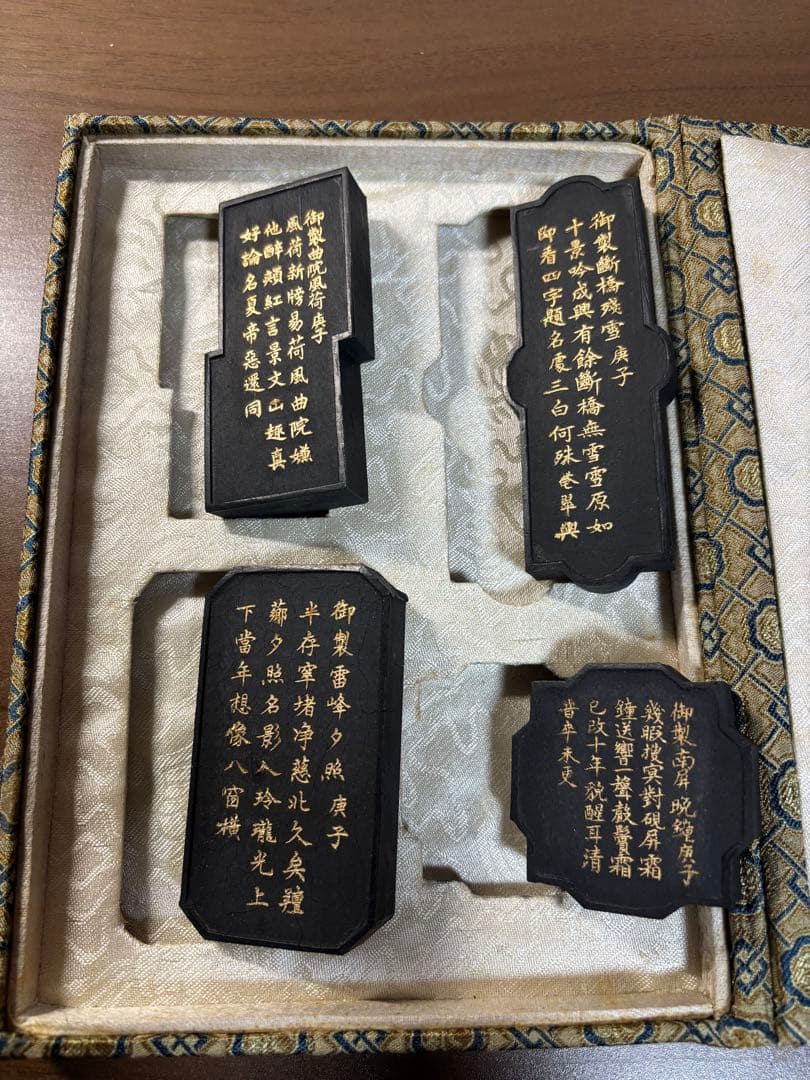 御製曲院風荷庚子
風荷新牓易荷風曲院嫌
他醉頰紅言景文山趣真
好論名夏帝惡還同
御製斷橋殘雪庚子
十景吟成興有餘斷橋無雪雪原如
即看四字題名處三白何殊卷翠輿
御製雷峰夕照庚子
半存窣堵净慈北久矣擅
薌夕照名影入玲瓏光上
下當年想像八窗橫
御製南屏晚鐘庚子
幾暇搜冥對硯屏霜
鐘送響一聲聲鬢霜
已改十年貌醒耳清
昔卒未更